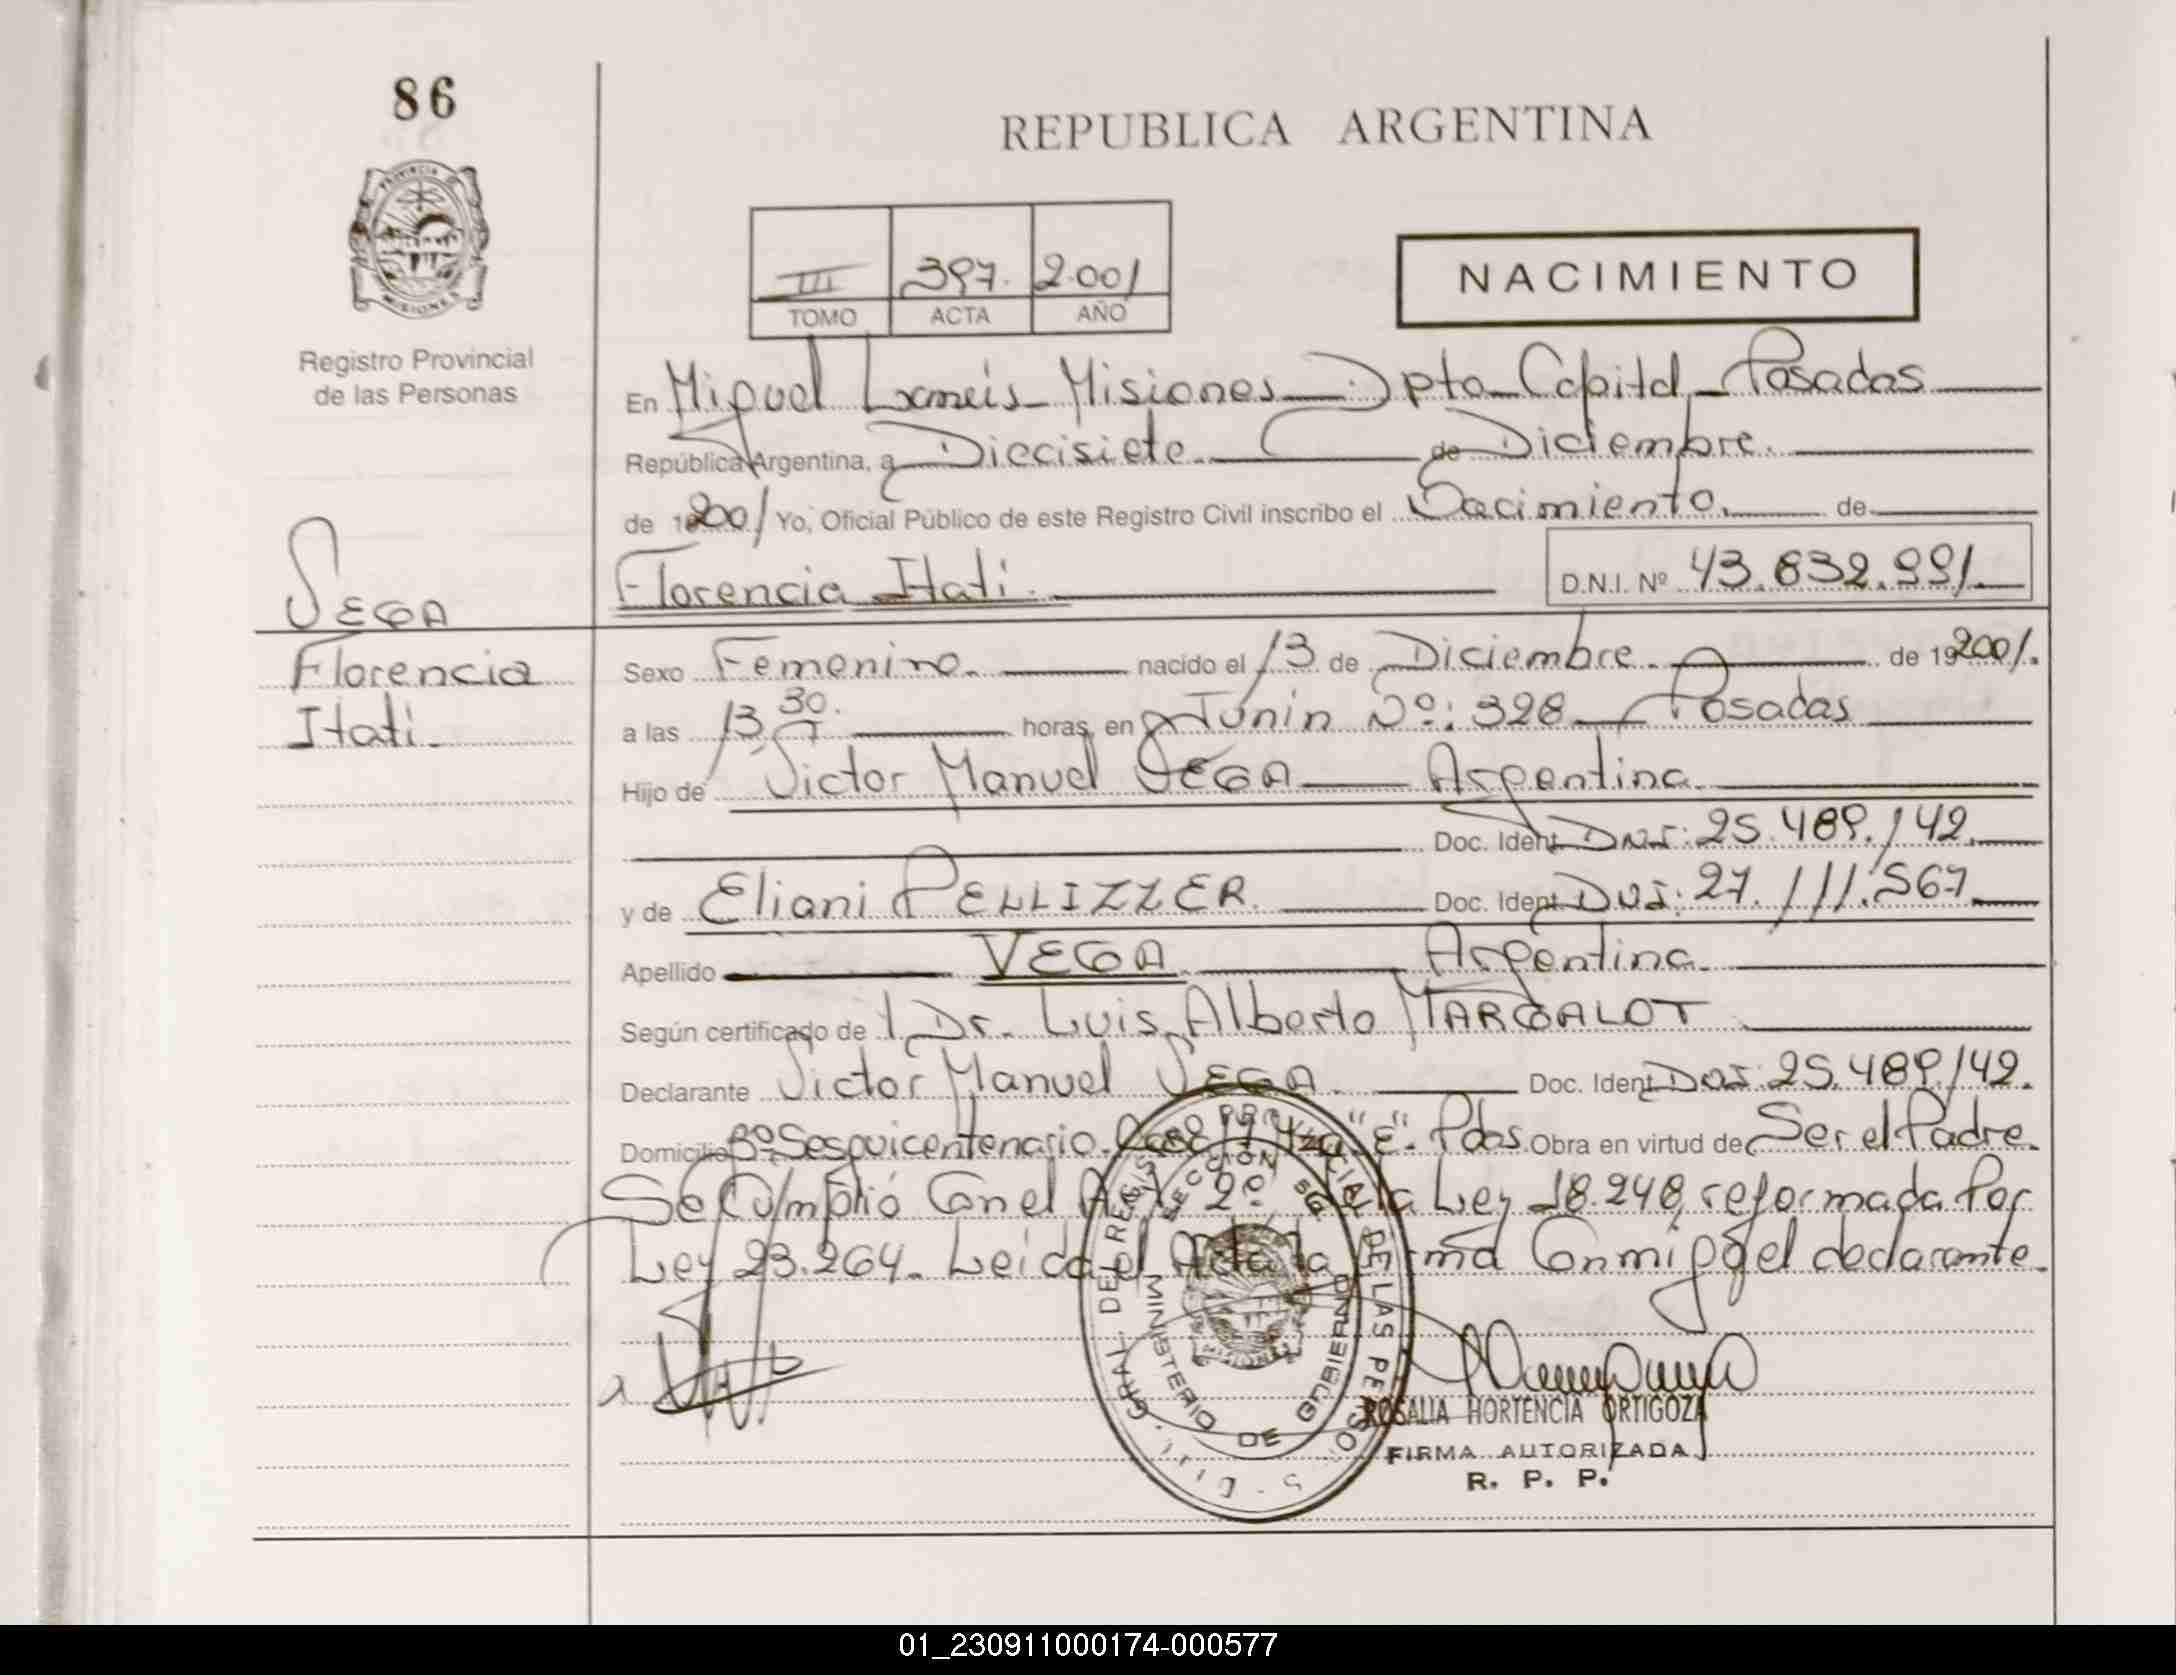 86
REPUBLICA ARGENTINA
PROVINCIA DE
MISIONES
III 397. 2.001
TOMO ACTA AÑO
NACIMIENTO
Registro Provincial
de las Personas
En Miguel Lanús - Misiones - Dpto - Capital - Posadas
República Argentina, a Diecisiete de Diciembre.
de 2001 Yo, Oficial Público de este Registro Civil inscribo el Nacimiento. de
Florencia Itati. D.N.I. Nº 43.832.991
VEGA
Florencia
Itati.
Sexo Femenino. nacido el 13 de Diciembre. de 192001.
a las 13 30. horas, en Junin Nº: 328 - Posadas
Hijo de Victor Manuel VEGA - Argentina.
Doc. Ident. DNI: 25.489.142.
y de Eliani PELLIZZER. Doc. Ident. DNI: 27.111.567.
Apellido VEGA Argentina.
Según certificado de Dr. Luis Alberto MARGALOT
Declarante Victor Manuel VEGA. Doc. Ident DNI: 25.489.142.
Domicilio Bº Sesquicentenario. "E". Pdas. Obra en virtud de Ser el Padre.
Se Cumplió Con el Art. 2º de la Ley 18.248, reformada Por
Ley 23.264. Leida el Acta la firma Conmigo el declarante.
DIR. GRAL. DEL REGISTRO PROVINCIAL DE LAS PERSONAS
SECCION
MINISTERIO DE GOBIERNO
ROSALIA HORTENCIA ORTIGOZA
FIRMA AUTORIZADA
R. P. P.
01_230911000174-000577